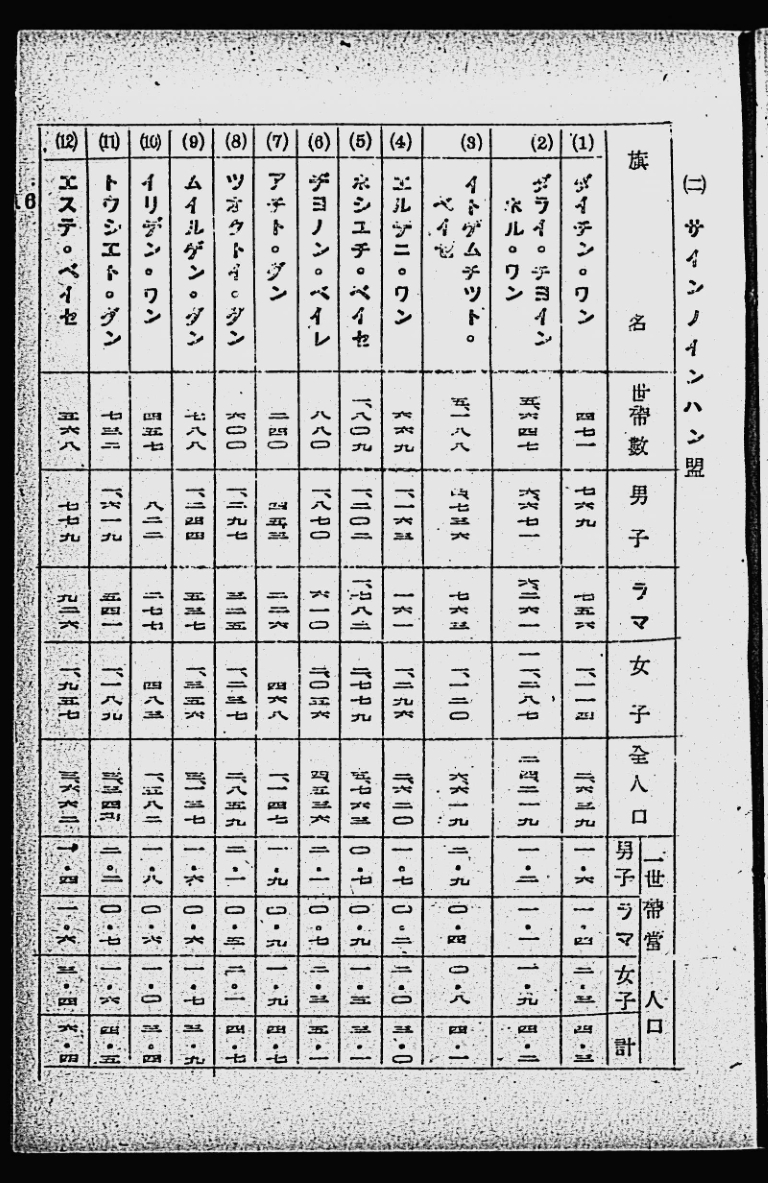 ㈡ サインノインハン盟
旗名 世帶數 男子 ラマ 女子 全人口 一世帶當人口 男子 ラマ 女子 計
(1) ダイチン。ワン 四七一 七六九 七五六 一、一一四 二、六三九 一・六 一・四 二・三 四・三
(2) ダライ。チヨインホル。ワン 五、六四七 六、六七一 六、二六一 一一、二八七 二四、二一九 一・二 一・一 一・九 四・二
(3) イトゲムチツト。ベイセ 五、一八八 七六三 一、一二〇 六、六一九 二・九 〇・四 〇・八 四・一
(4) エルデニ。ワン 六六九 一、一六三 一六一 一、二九六 二、六二〇 一・七 〇・二 二・〇 三・〇
(5) ホシユチ。ベイセ 一、八〇九 一、二〇二 一、七八二 二、七七九 五、七六三 〇・七 〇・九 一・三 三・一
(6) ヂヨノン。ベイレ 八八〇 一、八七〇 六一〇 二、〇五六 四、五三六 二・一 〇・七 二・三 五・一
(7) アチト。グン 二四〇 四五三 二二六 四六八 一、一四七 一・九 〇・九 一・九 四・七
(8) ツオクトイ。グン 六〇〇 一、二九七 三二五 一、二三七 二、八五九 二・一 〇・五 二・一 四・七
(9) ムイルゲン。グン 七八八 一、二四四 五三七 一、三五六 三、一三七 一・六 〇・六 一・七 三・九
(10) イリデン。ワン 四五七 八二二 二七七 四八三 一、五八二 一・八 〇・六 一・〇 三・四
(11) トウシエト。グン 七三二 一、六一九 五四一 一、一八九 二・二 〇・七 一・六 四・五
(12) エステ。ベイセ 五六八 七七九 九二六 一、九五七 三、六六二 一・四 一・六 三・四 六・四